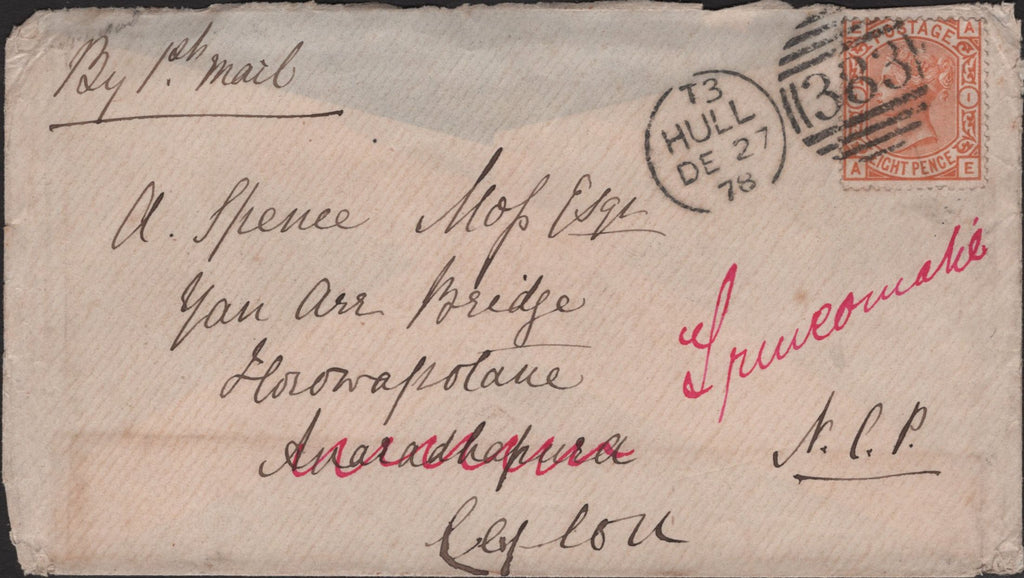 By Psh mail
T3
HULL
DE 27
78
383
POSTAGE
EIGHT PENCE
A
A E
A. Spence Moss Esqr
Yan Arr Bridge
Horowapotane
Trincomalie
Anaradhapura
N.C.P.
Ceylon